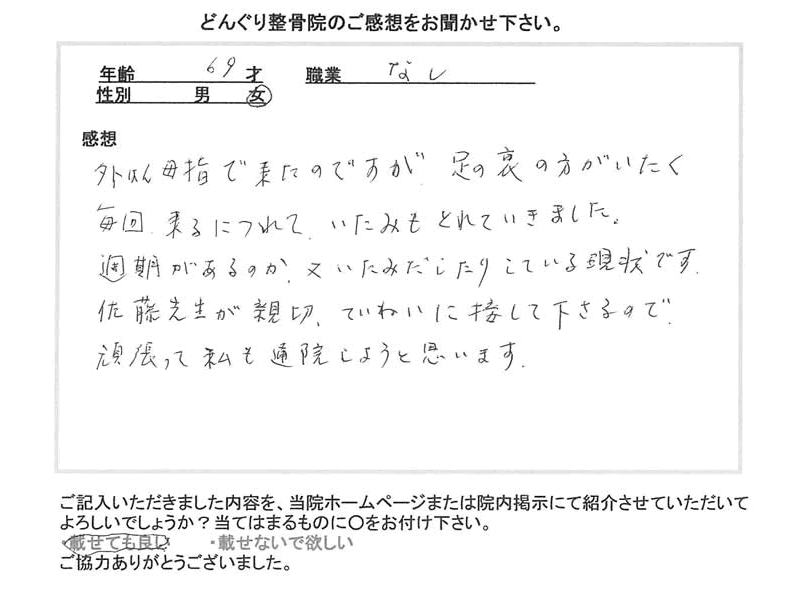 どんぐり整骨院のご感想をお聞かせ下さい。
年齢 69 才 職業 なし
性別 男 女
感想
外はん母指で来たのですが、足の裏の方がいたく
毎回、来るにつれて、いたみもとれていきました。
週期があるのか、又いたみだしたりしている現状です。
佐藤先生が親切、ていねいに接して下さるので、
頑張って私も通院しようと思います。
ご記入いただきました内容を、当院ホームページまたは院内掲示にて紹介させていただいて
よろしいでしょうか？当てはまるものに〇をお付け下さい。
・載せても良い ・載せないで欲しい
ご協力ありがとうございました。